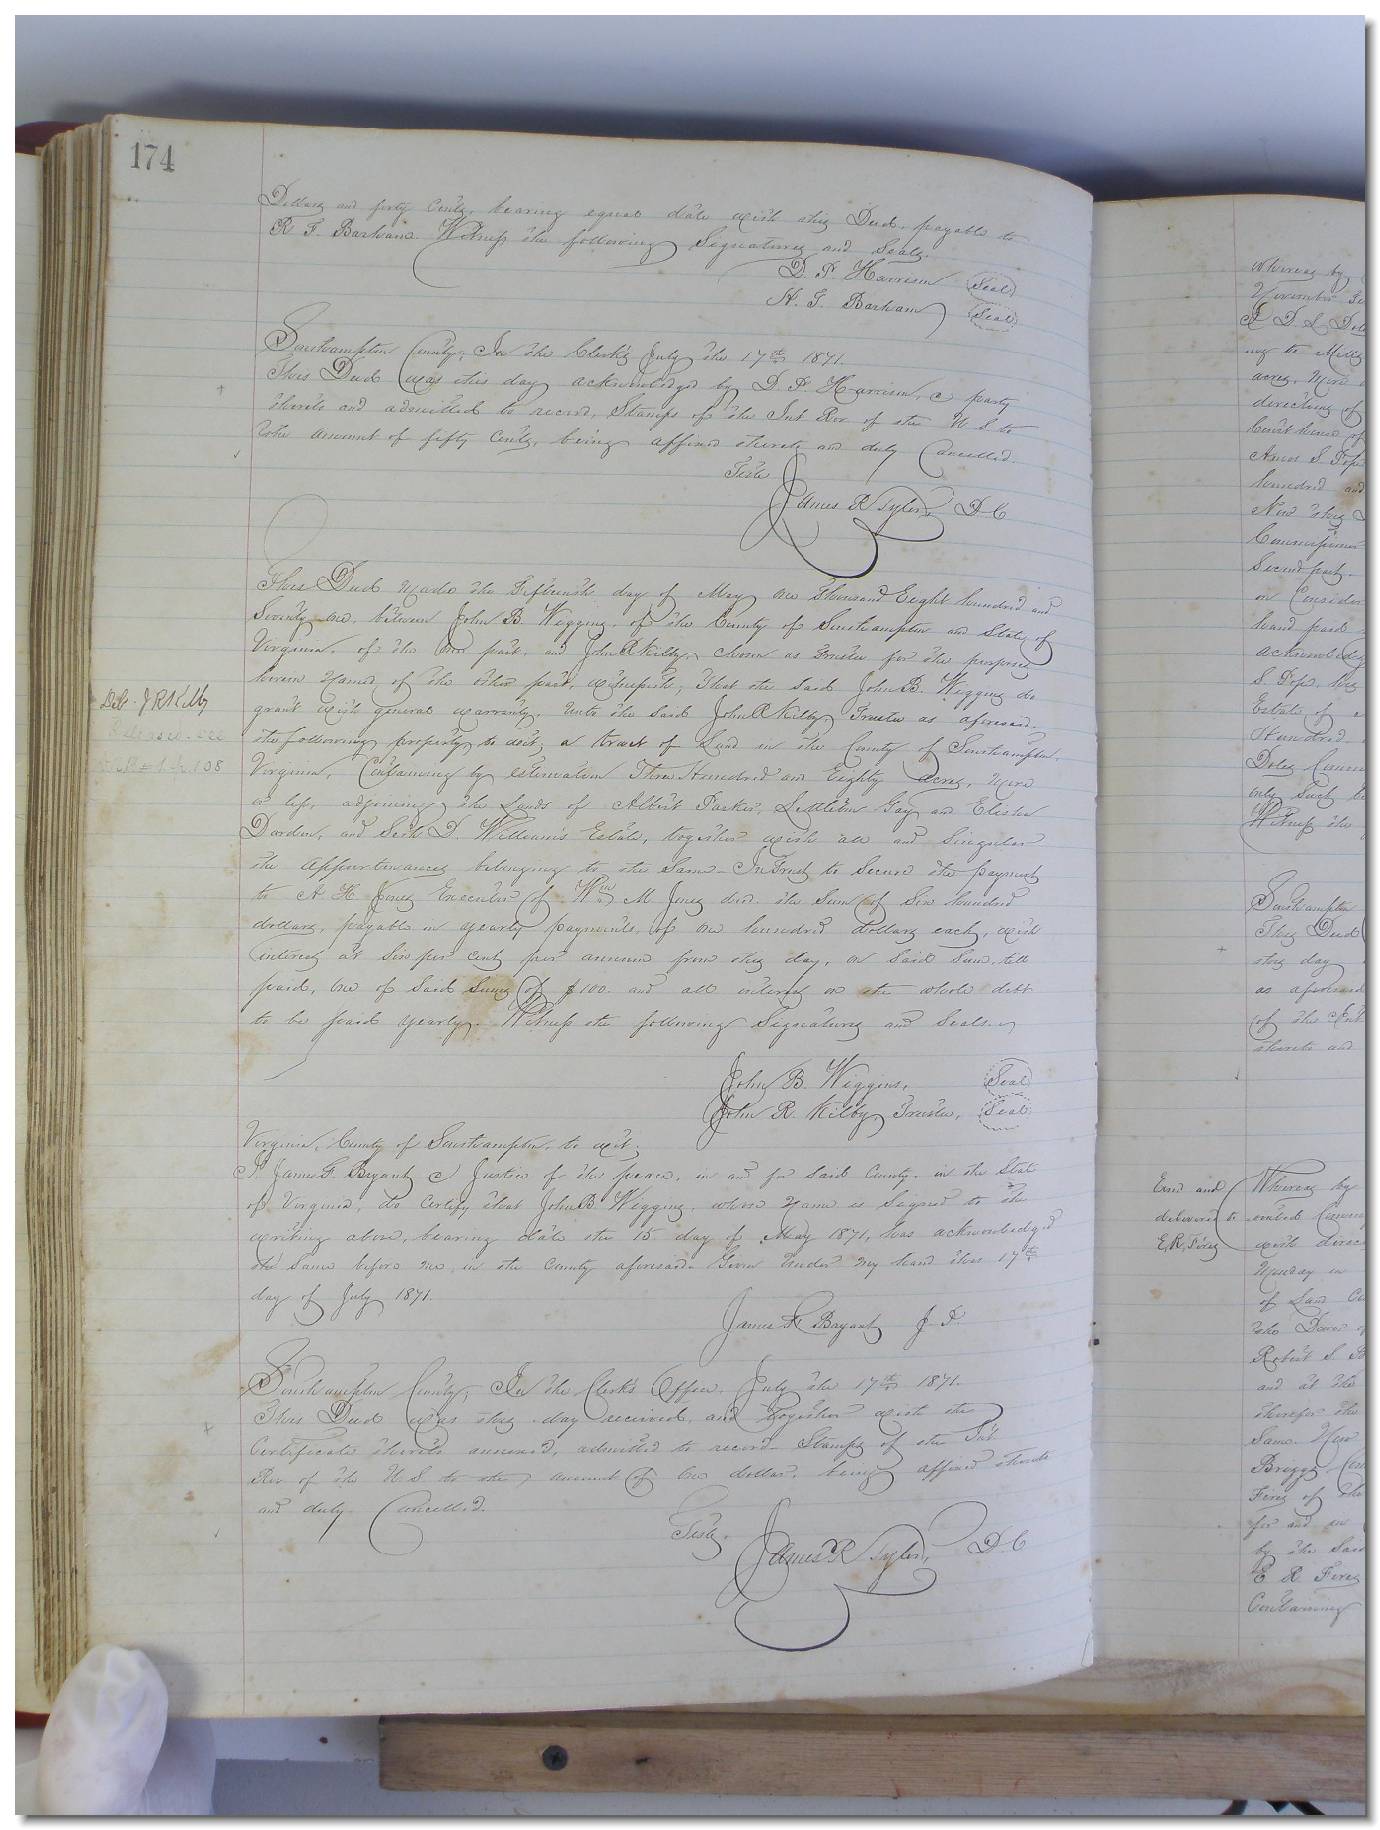 174
Dollars and forty Cents, bearing equal date with this Deed, payable to
R. F. Barham. Witness the following Signatures and Seals.
D. F. Harrison (Seal)
H. T. Barham (Seal)
Southampton County, In the Clerk's July the 17th 1871.
This Deed was this day acknowledged by D. F. Harrison, a party
thereto and admitted to record, Stamps of the Int Rev of the U S to
the amount of fifty Cents, being affixed thereto and duly Cancelled.
Teste
James R Tyler, D.C
This Deed made the Fifteenth day of May one thousand Eight hundred and
Seventy one, between John B. Wiggins, of the County of Southampton and State of
Virginia, of the one part, and John R Kilby, chosen as Trustee for the purposes
herein named of the other part, witnesseth, That the said John B. Wiggins do
Del. J R Kilby
grant with general warranty, unto the said John R Kilby Trustee as aforesaid,
Release see
the following property to wit, a tract of Land in the County of Southampton,
p. 108
Virginia, Containing by estimation Three Hundred and Eighty acres, more
or less, adjoining the Lands of Albert Parker, Littleton Gay and Elisha
Darden, and Seth D. Williams Estate, together with all and Singular
the appurtenances belonging to the Same - In Trust to Secure the payment
to A. H. Jones Executor of Wm M Jones decd. the Sum of Six hundred
dollars, payable in yearly payments, of one hundred dollars each, with
interest at Six per cent per annum from this day, on Said Sum, till
paid, one of Said Sums of $100. and all interest on the whole debt
to be paid yearly. Witness the following Signatures and Seals.
John B. Wiggins, (Seal)
John R. Kilby, Trustee, (Seal)
Virginia, County of Southampton, to wit,
I. James F. Bryant a Justice of the peace, in and for Said County, in the State
of Virginia, do Certify that John B Wiggins, whose name is Signed to the
writing above, bearing date the 15 day of May 1871, has acknowledged
the Same before me, in the County aforesaid. Given under my hand this 17th
day of July 1871.
James F Bryant J. P.
Southampton County, In the Clerk's Office, July the 17th 1871.
This Deed was this day received, and together with the
Certificate thereto annexed, admitted to record - Stamps of the Int
Rev of the U S to the amount of One dollar, being affixed thereto
and duly Cancelled.
Teste,
James R Tyler, D.C
whereas by
November
J D L
ney to Mills
acres, more
directing of
Court held of
Amos S. Pope
hundred and
Now this
Commissioner
Second part.
in Consider
hand paid
acknowledg
S. Pope, his
Estate of
Hundred
Doles Comm
only Such
Witness the
Southampton
This Deed
this day
as aforesaid
of the Int
thereto and
Exd and
delivered to
E. R. Firey
Whereas by
with direc
Monday in
of Land Co
the Dower
Robert S.
and at the
therefor the
Same. Now
Briggs
Firey of
for and in
by the Said
E R Firey
Containing